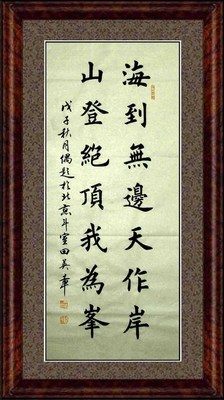 海到無邊天作岸
山登絕頂我為峯
戊子秋月偶題於北京斗室田英章